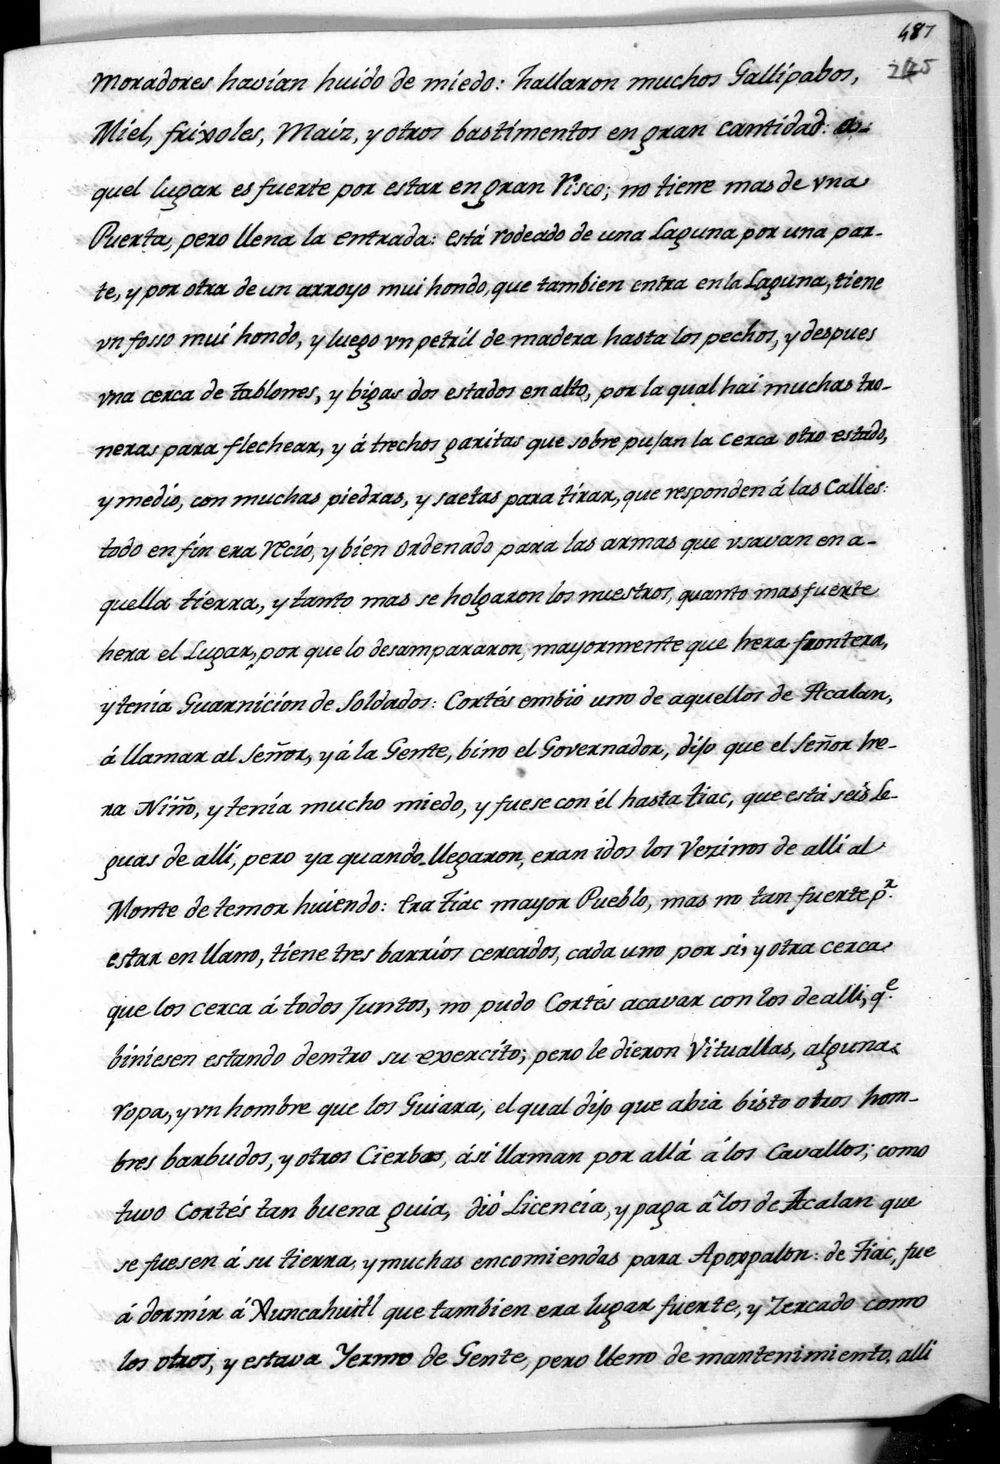 487
245
Moradores havian huido de miedo: hallaron muchos Gallipabos,
Miel, frixoles, Maiz, y otros bastimentos en gran cantidad: a-
quel lugar es fuerte por estar en gran Risco; no tiene mas de vna
Puerta, pero llena la entrada: está rodeado de una Laguna por una par-
te, y por otra de un arroyo mui hondo, que tambien entra en la Laguna, tiene
vn fosso mui hondo, y luego vn petril de madera hasta los pechos, y despues
vna cerca de tablones, y bigas dos estados en alto, por la qual hai muchas tro-
neras para flechear, y á trechos garitas que sobre pujan la cerca otro estado,
y medio, con muchas piedras, y saetas para tirar, que responden á las Calles:
todo en fin era recio, y bien ordenado para las armas que vsavan en a-
quella tierra, y tanto mas se holgaron los nuestros, quanto mas fuerte
hera el Lugar, por que lo desampararon, mayormente que hera frontera,
y tenia Guarnicion de Soldados: Cortés embio uno de aquellos de Acalan,
á llamar al Señor, y á la Gente, bino el Governador, dijo que el Señor he-
ra Niño, y tenía mucho miedo, y fuese con él hasta tiac, que está seis le-
guas de alli, pero ya quando llegaron, eran idos los Vezinos de alli al
Monte de temor huiendo: era Tiac mayor Pueblo, mas no tan fuerte pr.
estar en llano, tiene tres barrios cercados, cada uno por si, y otra cerca
que los cerca á todos Juntos, no pudo Cortés acavar con los de alli, qe.
biniesen estando dentro su exercito; pero le dieron Vituallas, alguna
ropa, y vn hombre que los Guiara, el qual dijo que abia bisto otros hom-
bres barbudos, y otros Cierbos, ási llaman por allá á los Cavallos; como
tuvo Cortés tan buena guia, dió Licencia, y paga á los de Acalan que
se fuesen á su tierra, y muchas encomiendas para Apoxpalon: de Tiac, fue
á dormir á Xuncahuitl que tambien era lugar fuerte, y Zercado como
los otros, y estava Yermo de Gente, pero lleno de mantenimiento, alli